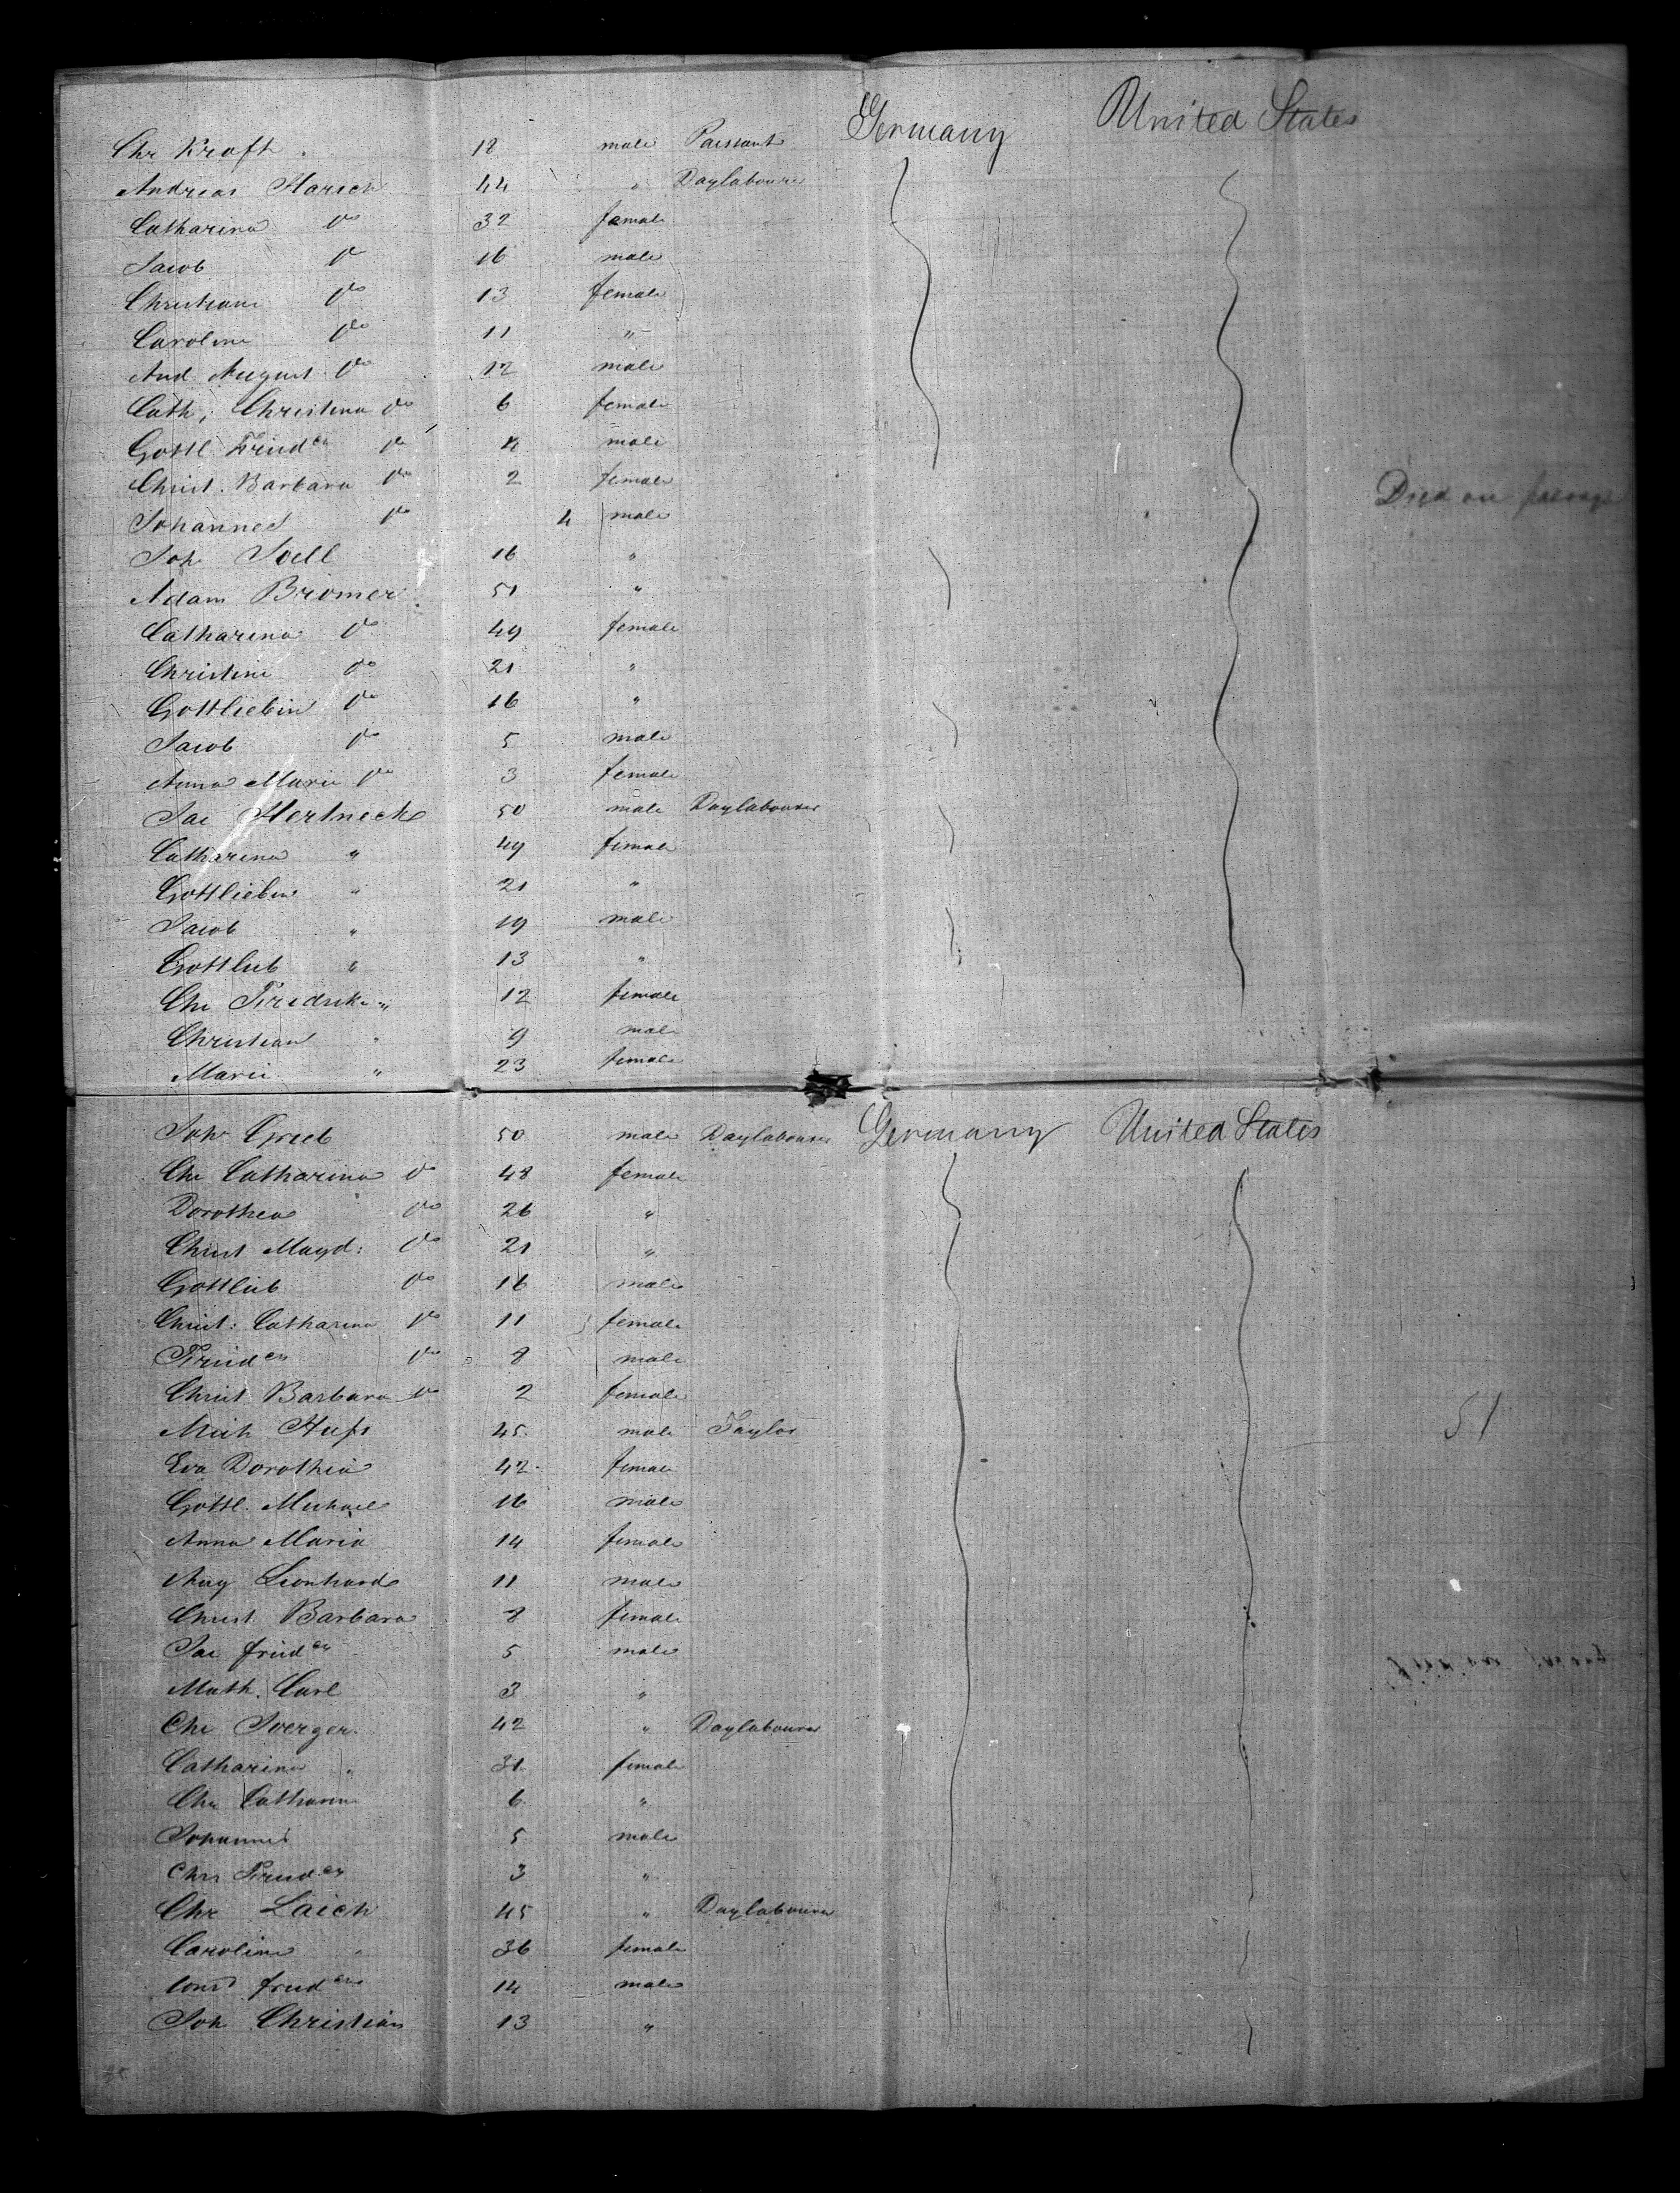 Germany United States
Chr Kraft 18 male Paissant
Andreas Harsch 44 " Daylabourer
Catharina do 32 female
Jacob do 16 male
Christiane do 13 female
Caroline do 11 "
And August do 12 male
Cath; Christina do 6 female
Gottl Fried ch do 4 male
Christ. Barbara do 2 female Died on passage
Johannes do 4 male
Joh 16 "
Adam Bromer 51 "
Catharina do 49 female
Christine do 21 "
Gottliebin do 16 "
Jacob do 5 male
Anna Marie do 3 female
Jac Hertneck 50 male Daylabourer
Catharina " 49 female
Gottliebin " 21 "
Jacob " 19 male
Gottlieb " 13 "
Chr Fredrike " 12 female
Christian " 9 male
Marie " 23 female
Joh Grieb 50 male Daylabourer Germany United States
Chr Catharina do 48 female
Dorothea do 26 "
Christ Magd: do 21 "
Gottlieb do 16 male
Christ: Catharina do 11 female
Fried ch do 8 male
Christ Barbara do 2 female
Mich 45 male Taylor 51
Eva Dorothea 42 female
Gottl. Michael 16 male
Anna Maria 14 female
Aug Leonhard 11 male
Christ. Barbara 8 female
Jac fried ch 5 male
Math. Carl 3 "
Chr 42 " Daylabourer
Catharina " 31 female
Chr Catharina 6 "
Johannes 5 male
Chr Fried ch 3 "
Chr Laich 45 " Daylabourer
Caroline " 36 female
fried ch 14 male
Joh Christian 13 "